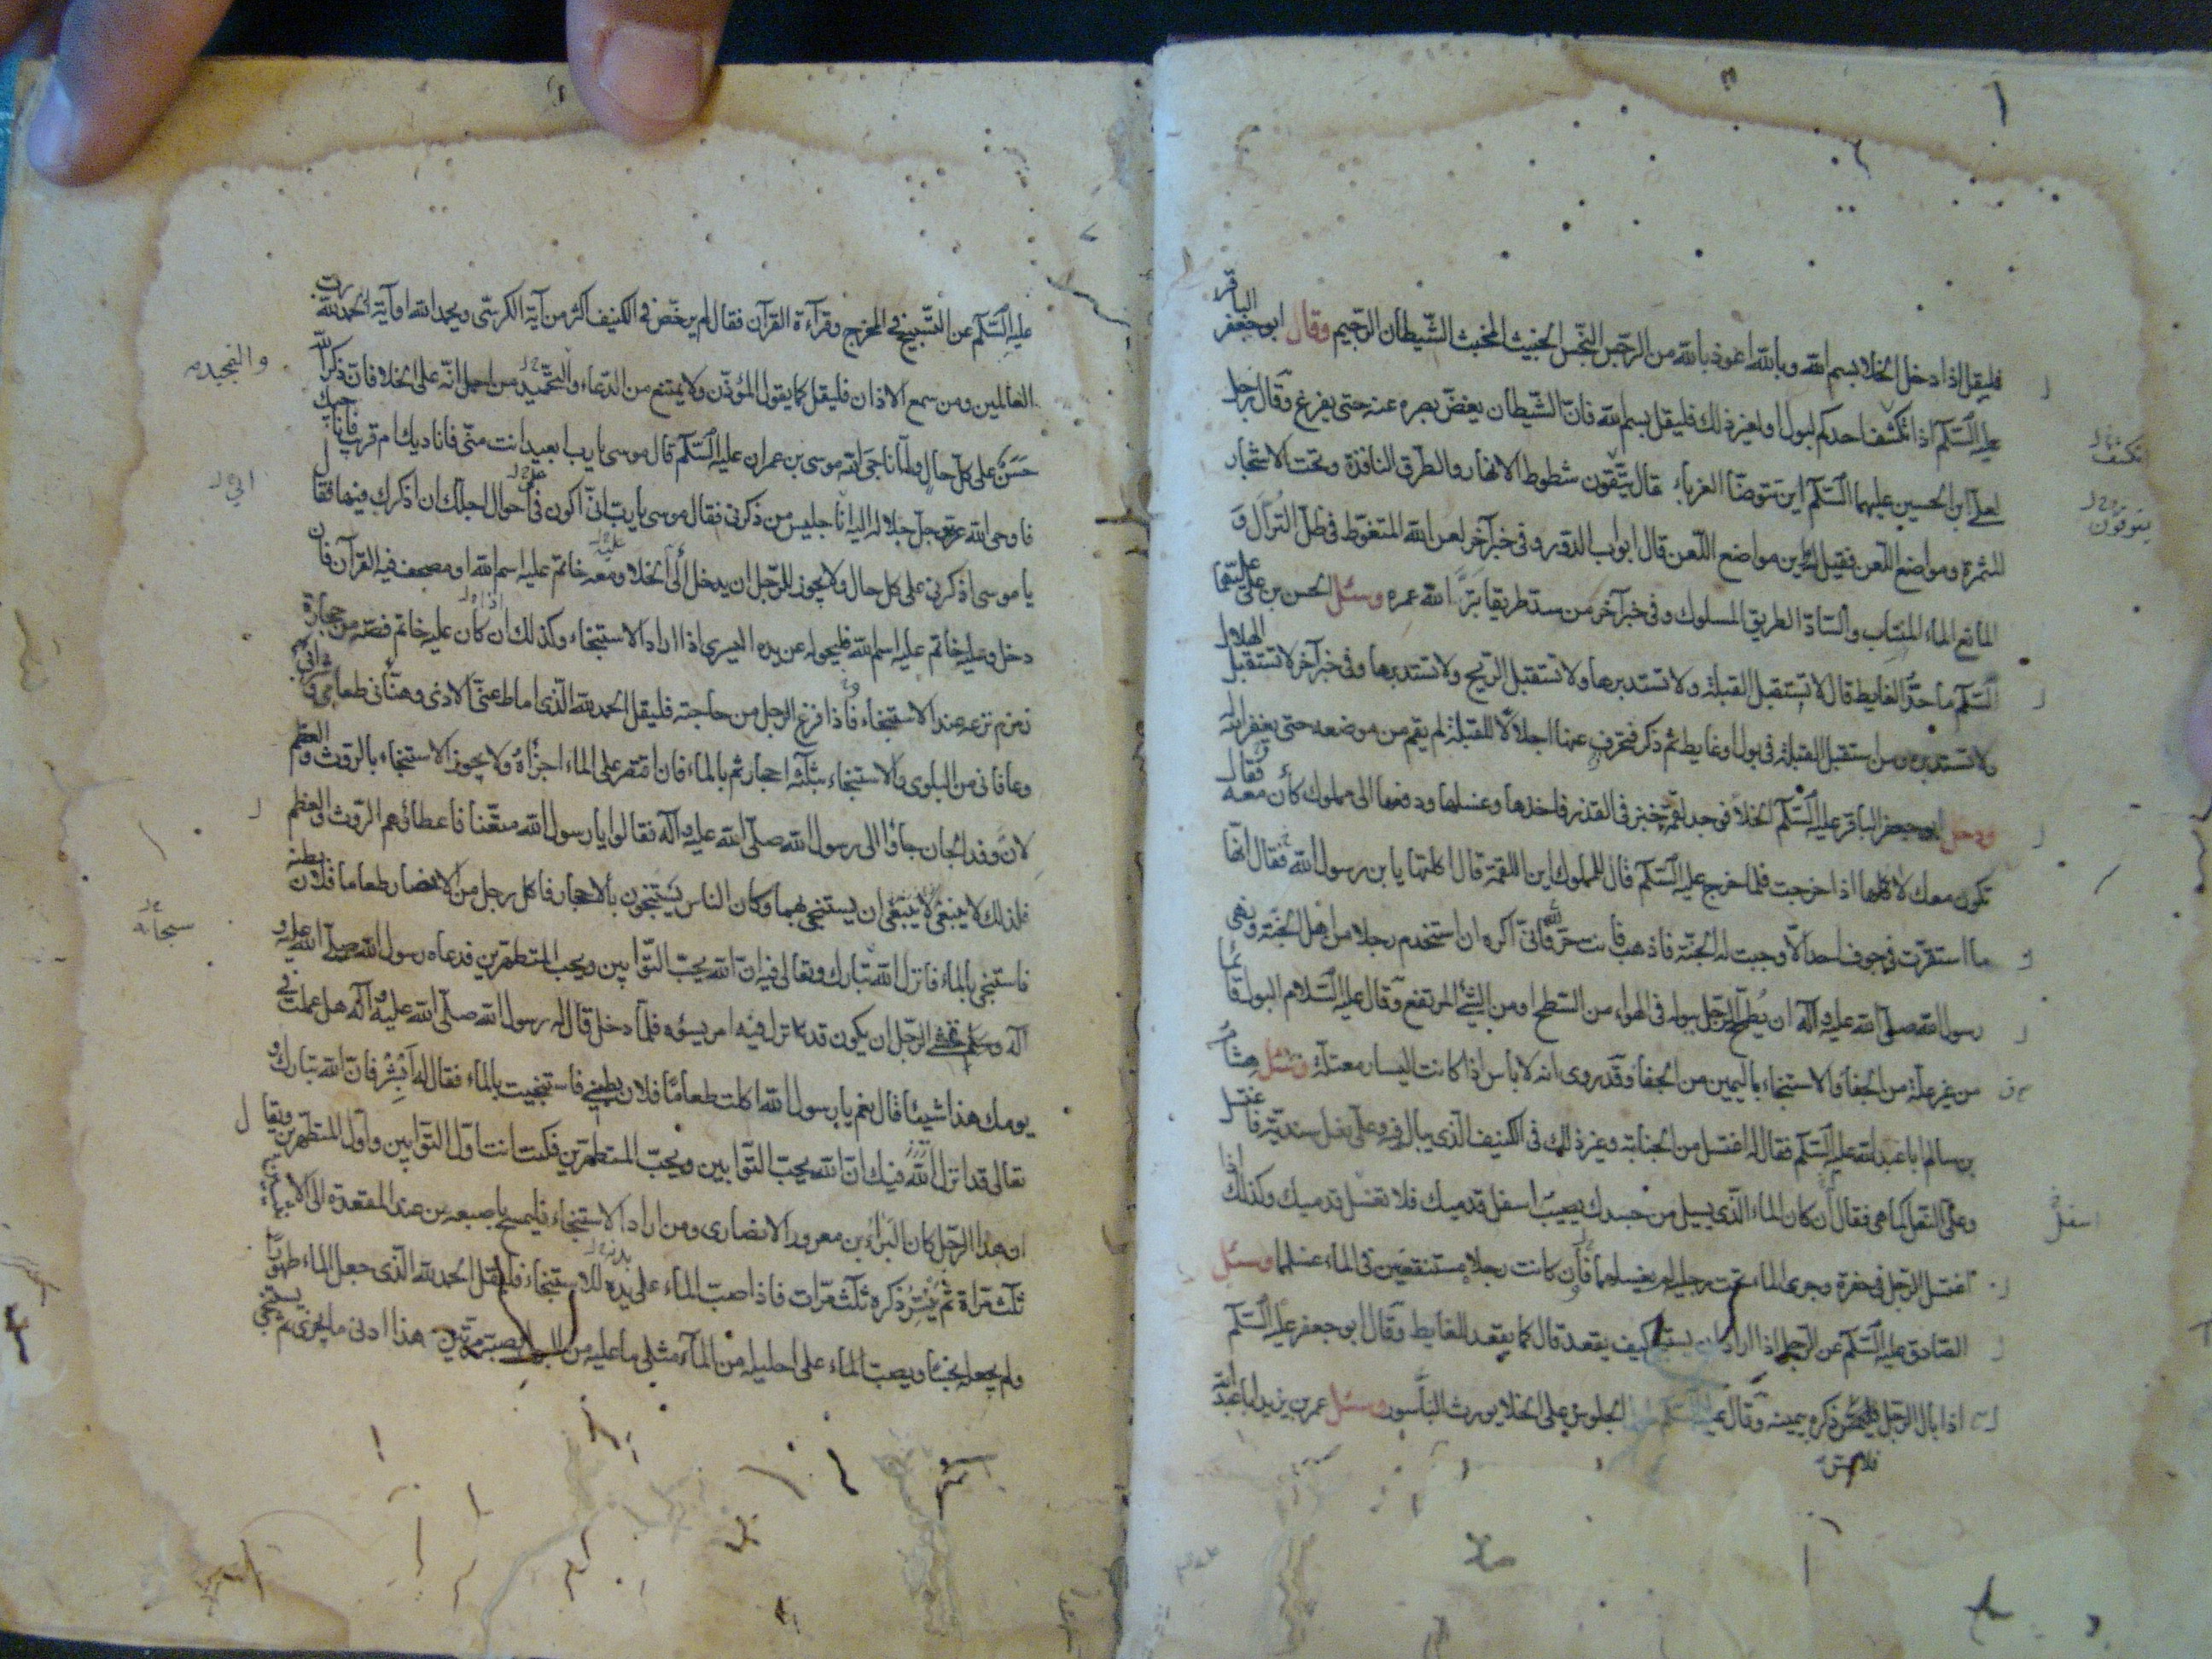 فليقل اذا دخل الخلا بسم الله وبالله اعوذ بالله من الرجس النجس الخبيث المخبث الشيطان الرجيم وقال ابو جعفر الباقر
عليه السلم اذا انكشف احدكم لبول او لغير ذلك فليقل بسم الله فان الشيطان يغض بصره عنه حتى يفرغ وقال رجل
لعلي ابن الحسين عليهما السلم اين يتوضا الغرباء قال يتقون شطوط الانهار والطرق النافذة وتحت الاشجار
المثمرة ومواضع اللعن فقيل له اين مواضع اللعن قال ابواب الدور وفي خبر آخر لعن الله المتغوط في ظل النزال و
المانع الماء المنتاب والساد الطريق المسلوك وفي خبر آخر من سد طريقا بتر الله عمره وسئل الحسن بن علي عليهما
السلم ما حد الغايط قال لا تستقبل القبلة ولا تستدبرها ولا تستقبل الريح ولا تستدبرها وفي خبر آخر لا تستقبل الهلال
ولا تستدبره ومن استقبل القبلة في بول او غايط ثم ذكر فتحرف عنها اجلالا للقبلة لم يقم من موضعه حتى يغفر الله له
ودخل ابو جعفر الباقر عليه السلم الخلا فوجد لقمة خبز في القذر فاخذها وغسلها ودفعها الى مملوك كان معه فقال
تكون معك لاكلها اذا خرجت فلما خرج عليه السلم قال للمملوك اين اللقمة قال اكلتها يا بن رسول الله فقال انها
ما استقرت في جوف احد الا وجبت له الجنة فاذهب فانت حر لله فاني اكره ان استخدم رجلا من اهل الجنة ونهى
رسول الله صلى الله عليه وآله ان يطمح الرجل ببوله في الهواء من السطح او من الشئ المرتفع وقال عليه السلام البول قائما
من غير علة من الجفا والاستنجاء باليمين من الجفا وقد روى انه لا باس اذا كانت اليسار معتلة وسئل هشام
بن سالم ابا عبد الله عليه السلم فقال له اغتسل من الجنابة وغير ذلك في الكنيف الذي يبال فيه وعلي نعل سندية فاغتسل
وعلي النعل كما هي فقال ان كان الماء الذي يسيل من جسدك يصيب اسفل قدميك فلا تغسل قدميك وكذلك اذا
اغتسل الرجل في حفرة وجرى الماء تحت رجليه لم يغسلهما فان كانت رجلاه مستنقعين في الماء غسلهما وسئل
الصادق عليه السلم عن الرجل اذا اراد ان يستنجي كيف يقعد قال كما يقعد للغايط وقال ابو جعفر عليه السلم
اذا بال الرجل فلا يمس ذكره بيمينه وقال عليه السلم طول الجلوس على الخلا يورث الباسور وسئل عمر بن يزيد ابا عبد الله
فلا يمس
انكشف
يتوقون
اسفل
عليه السلم عن التسبيح في المخرج وقرآءة القرآن فقال لم يرخص في الكنيف اكثر من آية الكرسى ويحمد الله او آية الحمد لله رب
العالمين ومن سمع الاذان فليقل كما يقول المؤذن ولا يمتنع من الدعاء والتحميد من اجل انه على الخلا فان ذكر الله
حسن على كل حال ولما ناجى الله موسى بن عمران عليه السلم قال موسى يا رب ابعيد انت منى فاناديك ام قريب فاناجيك
فاوحى الله عز وجل جلاله اليه انا جليس من ذكرنى فقال موسى يا رب انى اكون في احوال اجلك ان اذكرك فيها فقال
يا موسى اذكرنى على كل حال ولا يجوز للرجل ان يدخل الى الخلا ومعه خاتم عليه اسم الله او مصحف فيه القرآن فان
دخل وعليه خاتم عليه اسم الله فليحوله عن يده اليسرى اذا اراد الاستنجاء وكذلك ان كان عليه خاتم فصه من حجارة
زمزم نزعه عند الاستنجاء فاذا فرغ الرجل من حاجته فليقل الحمد لله الذى اماط عنى الاذى وهنأنى طعامى وشرابى
وعافانى من البلوى والاستنجاء بثلثة احجار ثم بالماء فان اقتصر على الماء اجزاه ولا يجوز الاستنجاء بالروث والعظم
لان وفد الجان جاؤا الى رسول الله صلى الله عليه وآله فقالوا يا رسول الله متعنا فاعطاهم الروث والعظم
فلذلك لا ينبغى ان يستنجى بهما وكان الناس يستنجون بالاحجار فاكل رجل من الانصار طعاما فلان بطنه
فاستنجى بالماء فانزل الله تبارك وتعالى فيه ان الله يحب التوابين ويحب المتطهرين فدعاه رسول الله صلى الله عليه و
آله وسلم فخشى الرجل ان يكون قد نزل فيه امر يسؤه فلما دخل قال له رسول الله صلى الله عليه وآله هل عملت في
يومك هذا شيئا قال نعم يا رسول الله اكلت طعاما فلان بطنى فاستنجيت بالماء فقال له ابشر فان الله تبارك و
تعالى قد انزل فيك ان الله يحب التوابين ويحب المتطهرين فكنت انت اول التوابين واول المتطهرين ويقال
ان هذا الرجل كان البراء بن معرور الانصارى ومن اراد الاستنجاء فليمسح باصبعه من عند المقعدة الى الانثيين
ثلث مراة ثم ينتر ذكره ثلث مرات فاذا صب الماء على يده للاستنجاء فليقل الحمد لله الذى جعل الماء طهورا
ولم يجعله نجسا ويصب الماء على احليله من الماء مثلى ما عليه من البول يصبه مرتين هذا ادنى ما يجزى ثم يستنجى
والتمجيد
سبحانه